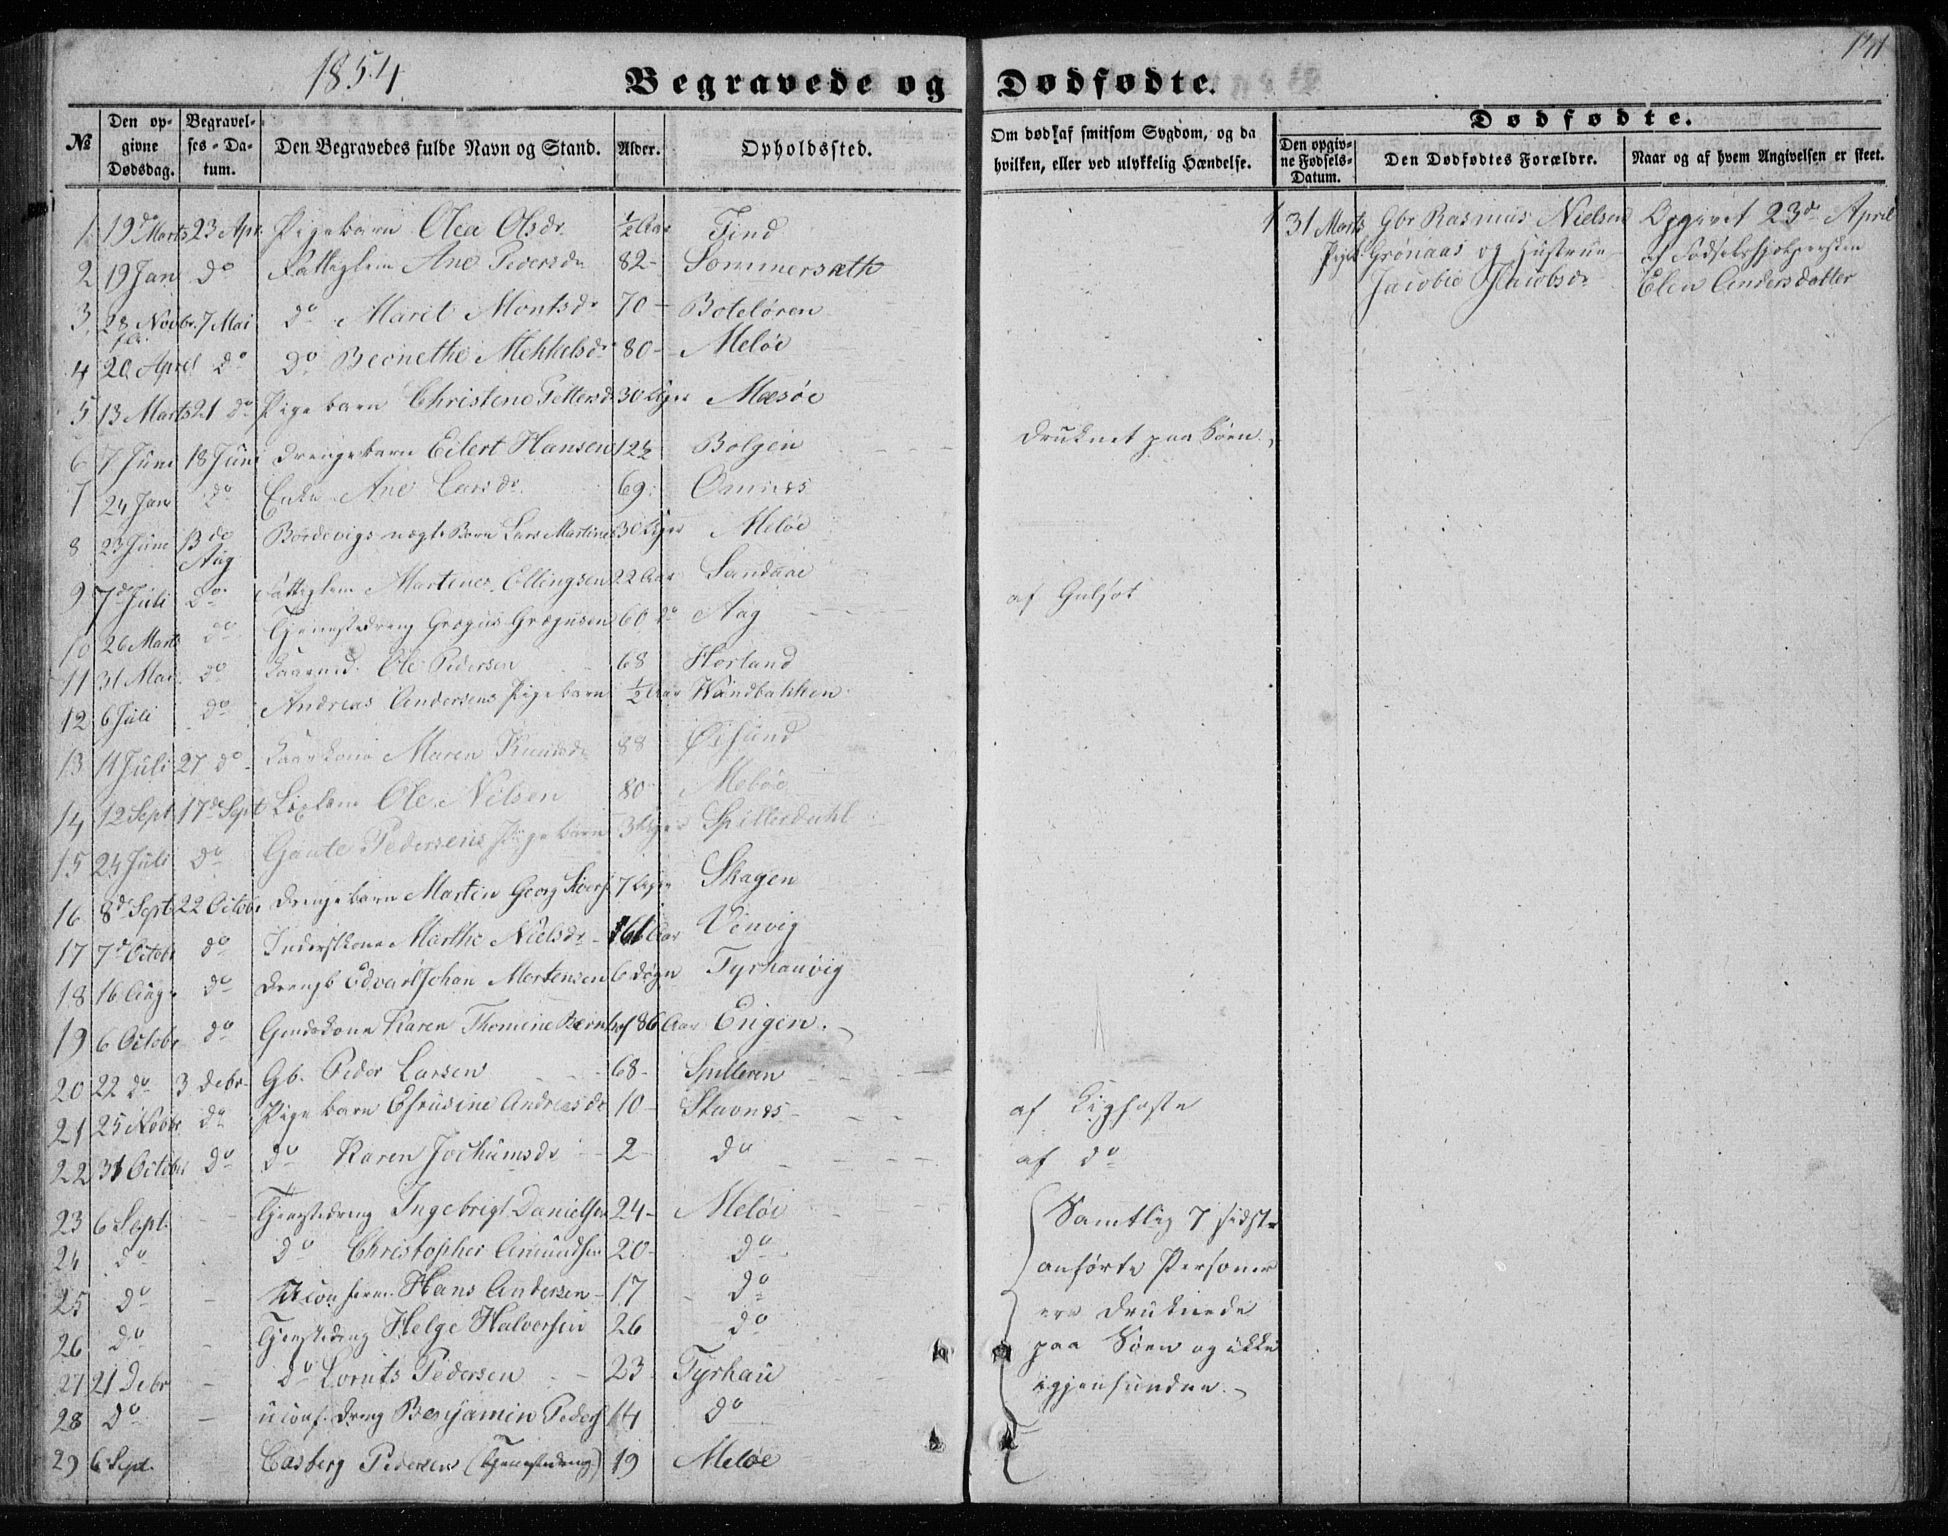 1854
141
Begravede og Dødfødte.
№
Den opgivne Dødsdag.
Begravelses-Datum.
Den Begravedes fulde Navn og Stand.
Alder.
Opholdssted.
Om død af smitsom Sygdom, og da hvilken, eller ved ulykkelig Hændelse.
Dødfødte.
Den opgivne Fødsels-Datum.
Den Dødfødtes Forældre.
Naar og af hvem Angivelsen er skeet.
1 19de Marts 23 Apr. Pigebarn Olea Olsdr. ½ Aar Find
2 19 Jan do Fattiglem Ane Pedersdr 82 - Sommersæth
3, 28 Novbr. 7 Mai do Marit Montsdr 70 - Boteløren
4 20 April do do Beonethe Mekkelsdr 80 - Meløe
5 13 Marts 21 do Pigebarn Christene Pettersd 30 Uger Mæsøe
6 7 Juni 18 Juni Drengebarn Eilert Hansen 12½ Bolgen Druknet paa Søen.
7 24 Jan do Enke Ane Larsdr 69 Omnes
8 23 June 13de Aug Børn Lars Martines Uger Meløe
9 7d Juli do Fattiglem Martines Ellingsen 22 Aar Sandaae af Gulsot
10 26 Marts do Tjenestedreng Grægus Grægusen 60 do Aag
11 31 Mai do Kaarmd. Ole Pedersen 68 Horland
12 6 Juli do Andreas Andersens Pigebarn ½ Aar Wandbakken
13 11 Juli 27 do Kaarkone Maren Knudsdr 88 Øesund
14 12 Sept 17de Sept Ole Nilsen 80 - Meløe
15 24 Juli do Gaute Pedersens Pigebarn 3 Uger Spillerdahl
16 8de Sept 22 Octobr Drengebarn Martin Georg 7 Uger Skagen
17 7d Octobr do Inderstkone Marthe Nielsdr - 61 Aar Venvig
18 16 Aug do Drengb Edvart Johan Mortensen 6 Døgn Tyrhauvig
19 6 Octobr do Karen Thomine 86 Aar Engen.
20 22 do 3 Debr Gb. Peder Larsen 68 - Spilleren
21 25 Novbr do Pigebarn Efrusine Andreasdr 10 - Stavnes - af Kighoste
22 31 October do do Karen Jochumsdr 2 - do af do
23 6 Sept. Tjenestedreng Ingebrigt Danielsen 24 - Meløe
24 do do Christopher Amundsen 20 - do
25 do - Uconferm. Hans Andersen - 17 do
26 do - Tjenestedreng Helge Halversen 26 do
27 21 Debr - do Lornts Pedersen 23 Tyrhau
28 do - uconf. Dreng Benjamin Peders 14 do
29 6 Sept. Casberg Pedersen (Tjenestedreng) 19 Meløe
Samtlig 7 sidst
anførte Personer
ere druknede
paa Søen og ikke
igjenfunden.
1 31 Marts Gbr Rasmus Nielsen Opgivet 23de April
Pigeb. Grønaas og Hustrue af Fødselshjelpersken
Jacobie Jacobsdr Elen Andersdatter